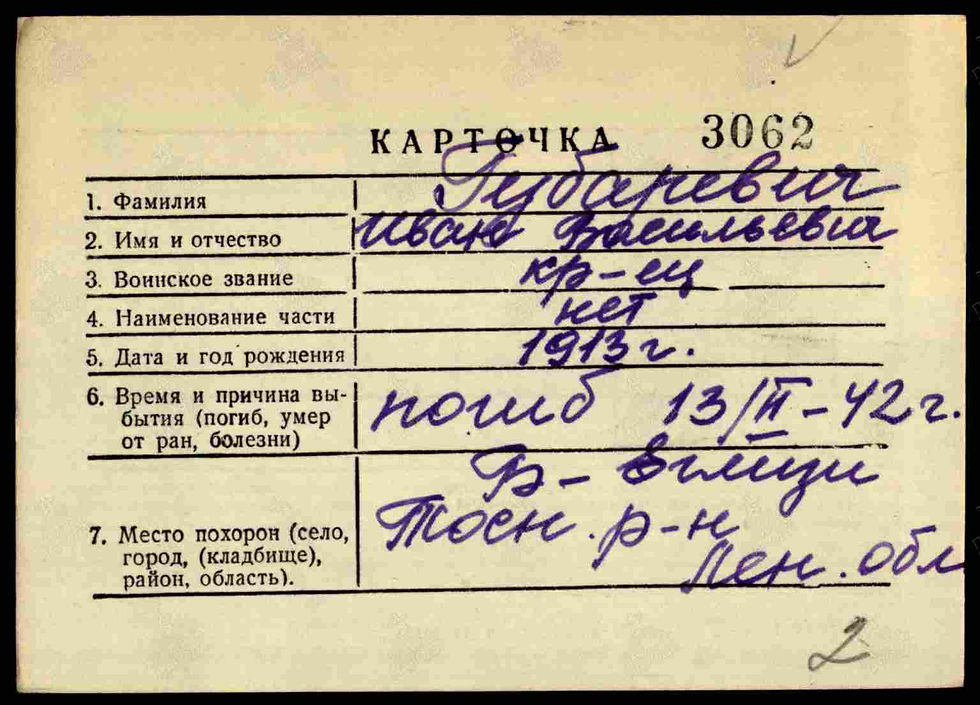 КАРТОЧКА 3062
1. Фамилия Губаревич
2. Имя и отчество Иван Васильевич
3. Воинское звание кр-ец
4. Наименование части нет
5. Дата и год рождения 1913 г.
6. Время и причина вы-
бытия (погиб, умер погиб 13/II-42 г.
от ран, болезни)
Б-Еглизи
7. Место похорон (село, Тосн. р-н
город, (кладбище),
район, область). Лен. обл
2